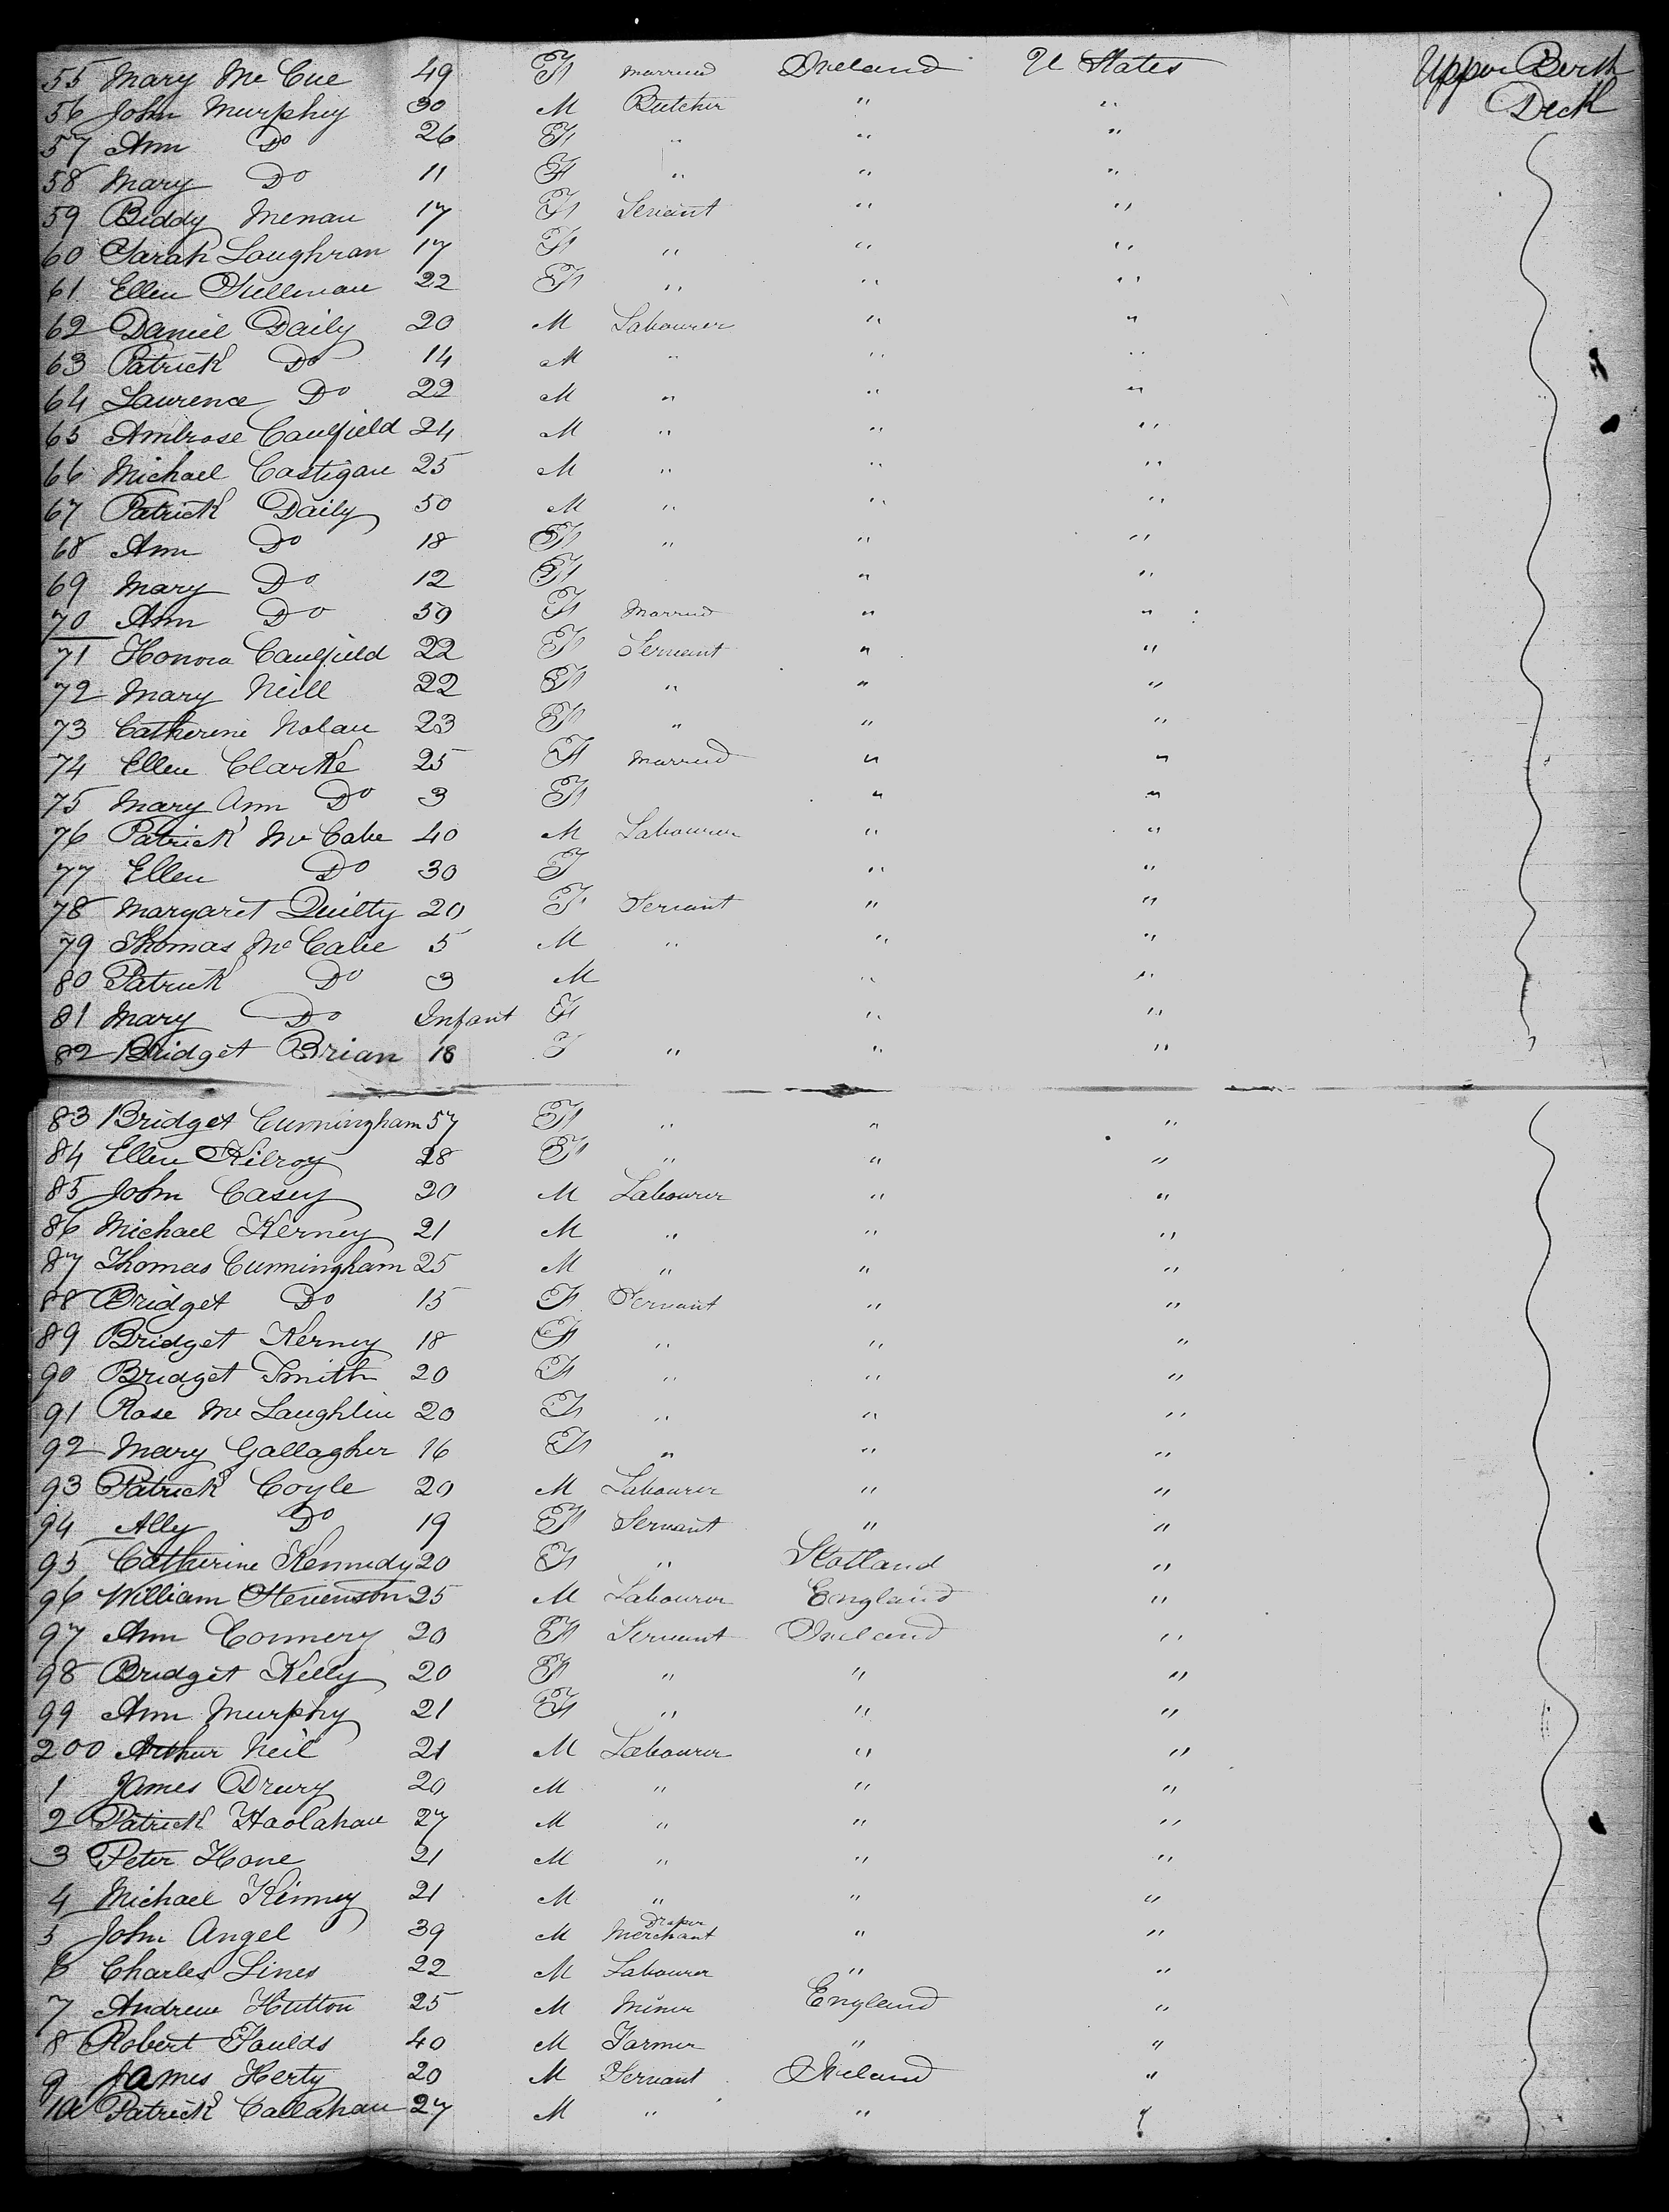 55 Mary Mc Cue 49 F Married Ireland U States Upper Berth
56 John Murphy 30 M Butcher " " Deck
57 Ann Do 26 F " " "
58 Mary Do 11 F " " "
59 Biddy Menau 17 F Servant " "
60 Sarah Loughran 17 F " " "
61 Ellen Sullivan 22 F " " "
62 Daniel Daily 20 M Labourer " "
63 Patrick Do 14 M " " "
64 Laurence Do 22 M " " "
65 Ambrose Caulfield 24 M " " "
66 Michael Castigan 25 M " " "
67 Patrick Daily 50 M " " "
68 Ann Do 18 F " " "
69 Mary Do 12 F " "
70 Ann Do 50 F Married " "
71 Honora Caulfield 22 F Servant " "
72 Mary Neill 22 F " " "
73 Catherine Nolan 23 F " " "
74 Ellen Clarke 25 F Married " "
75 Mary Ann Do 3 F " "
76 Patrick Mc Cabe 40 M Labourer " "
77 Ellen Do 30 F " "
78 Margaret Quilty 20 F Servant " "
79 Thomas Mc Cabe 5 M " " "
80 Patrick Do 3 M " "
81 Mary Do Infant F " "
82 Bridget Brian 18 F " " "
83 Bridget Cunningham 57 F " " "
84 Ellen Kilroy 28 F " " "
85 John Casey 20 M Labourer " "
86 Michael Kerney 21 M " " "
87 Thomas Cunningham 25 M " " "
88 Bridget Do 15 F Servant " "
89 Bridget Kerney 18 F " " "
90 Bridget Smith 20 F " " "
91 Rose Mc Laughlin 20 F " " "
92 Mary Gallagher 16 F " " "
93 Patrick Coyle 20 M Labourer " "
94 Ally Do 19 F Servant " "
95 Catherine Kennedy 20 F " Scotland "
96 William Stevenson 25 M Labourer England "
97 Ann Connery 20 F Servant Ireland "
98 Bridget Kelly 20 F " " "
99 Ann Murphy 21 F " " "
200 Arthur Neil 21 M Labourer " "
1 James Drury 20 M " " "
2 Patrick Haolahan 27 M " " "
3 Peter Hone 21 M " " "
4 Michael Kinney 21 M " " "
5 John Angel 39 M Draper Merchant " "
6 Charles Lines 22 M Labourer " "
7 Andrew Hutton 25 M Miner England "
8 Robert Foulds 40 M Farmer " "
9 James Herty 20 M Servant Ireland "
10 Patrick Callahan 27 M " " "